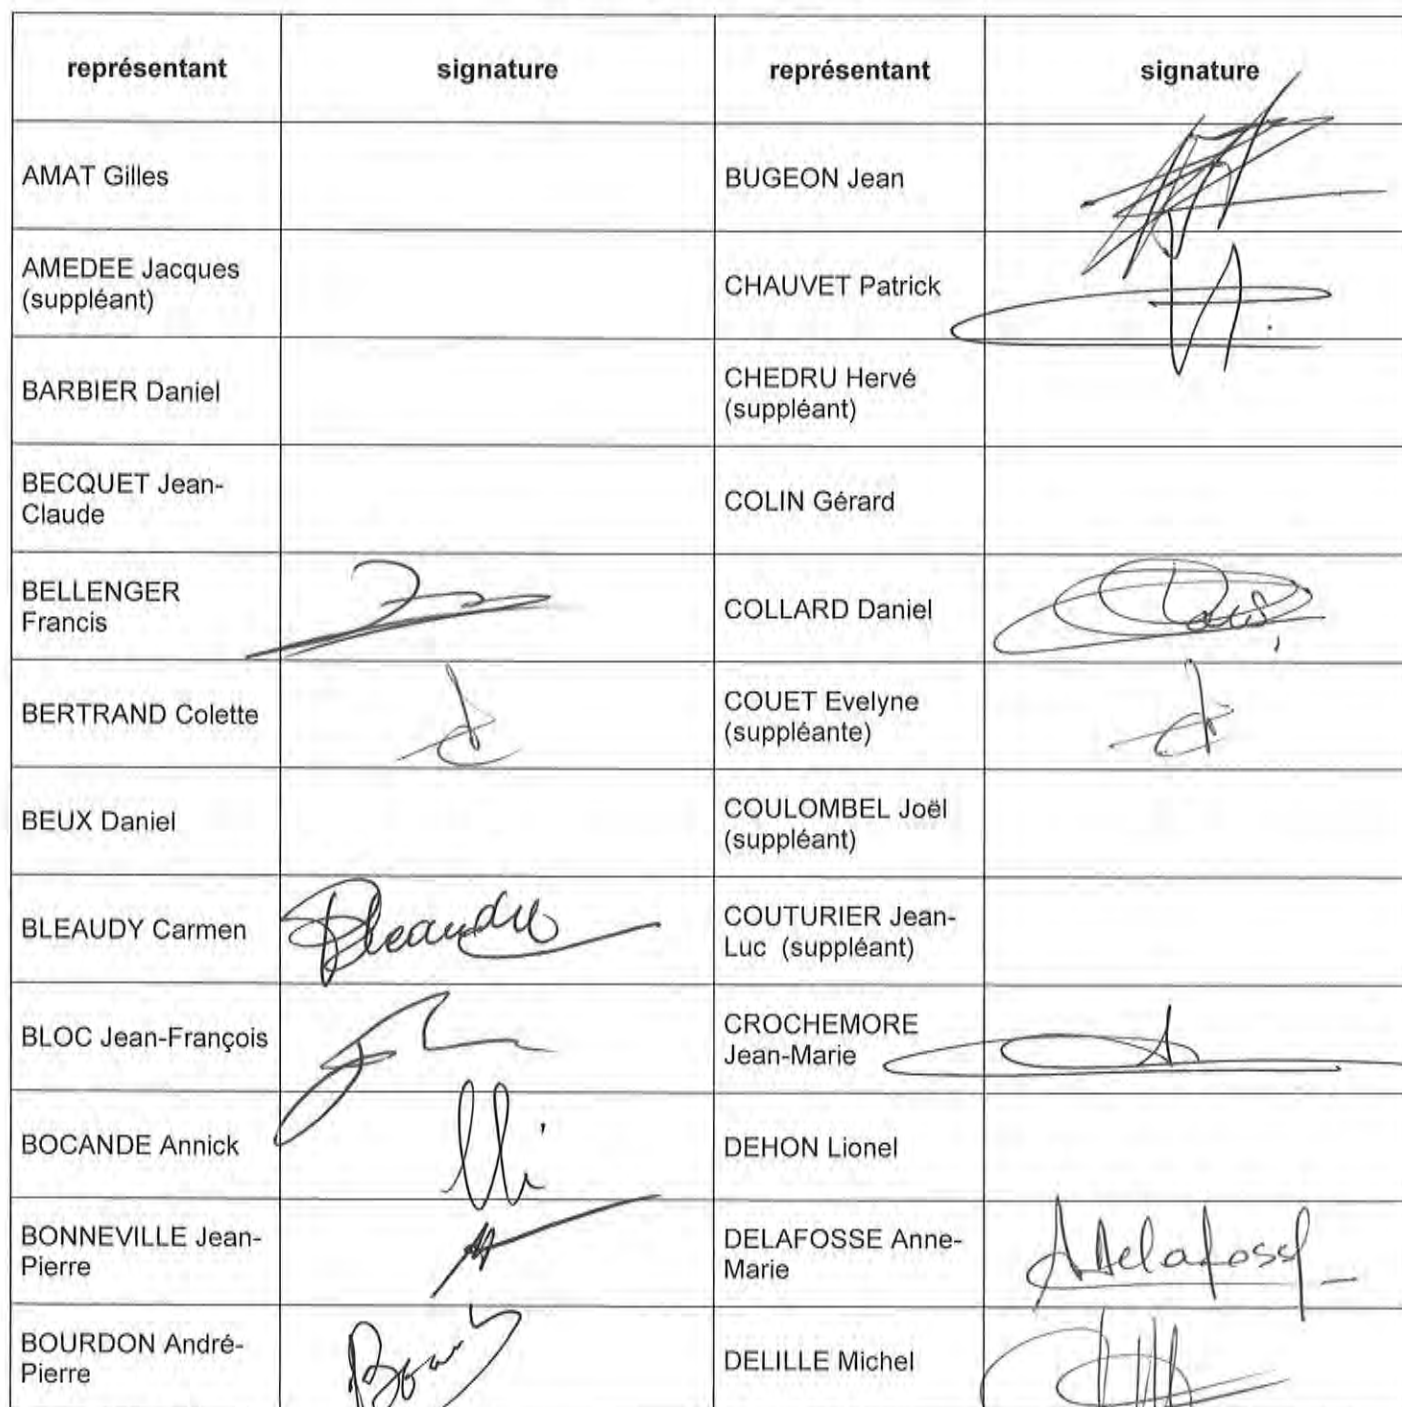 représentant signature représentant signature
AMAT Gilles
BUGEON Jean
AMEDEE Jacques
(suppléant)
CHAUVET Patrick
BARBIER Daniel
CHEDRU Hervé
(suppléant)
BECQUET Jean-
Claude
COLIN Gérard
BELLENGER
Francis
COLLARD Daniel
BERTRAND Colette
COUET Evelyne
(suppléante)
BEUX Daniel
COULOMBEL Joël
(suppléant)
BLEAUDY Carmen
Bleaudy
COUTURIER Jean-
Luc (suppléant)
BLOC Jean-François
CROCHEMORE
Jean-Marie
BOCANDE Annick
DEHON Lionel
BONNEVILLE Jean-
Pierre
DELAFOSSE Anne-
Marie
ADelafosse
BOURDON André-
Pierre
DELILLE Michel